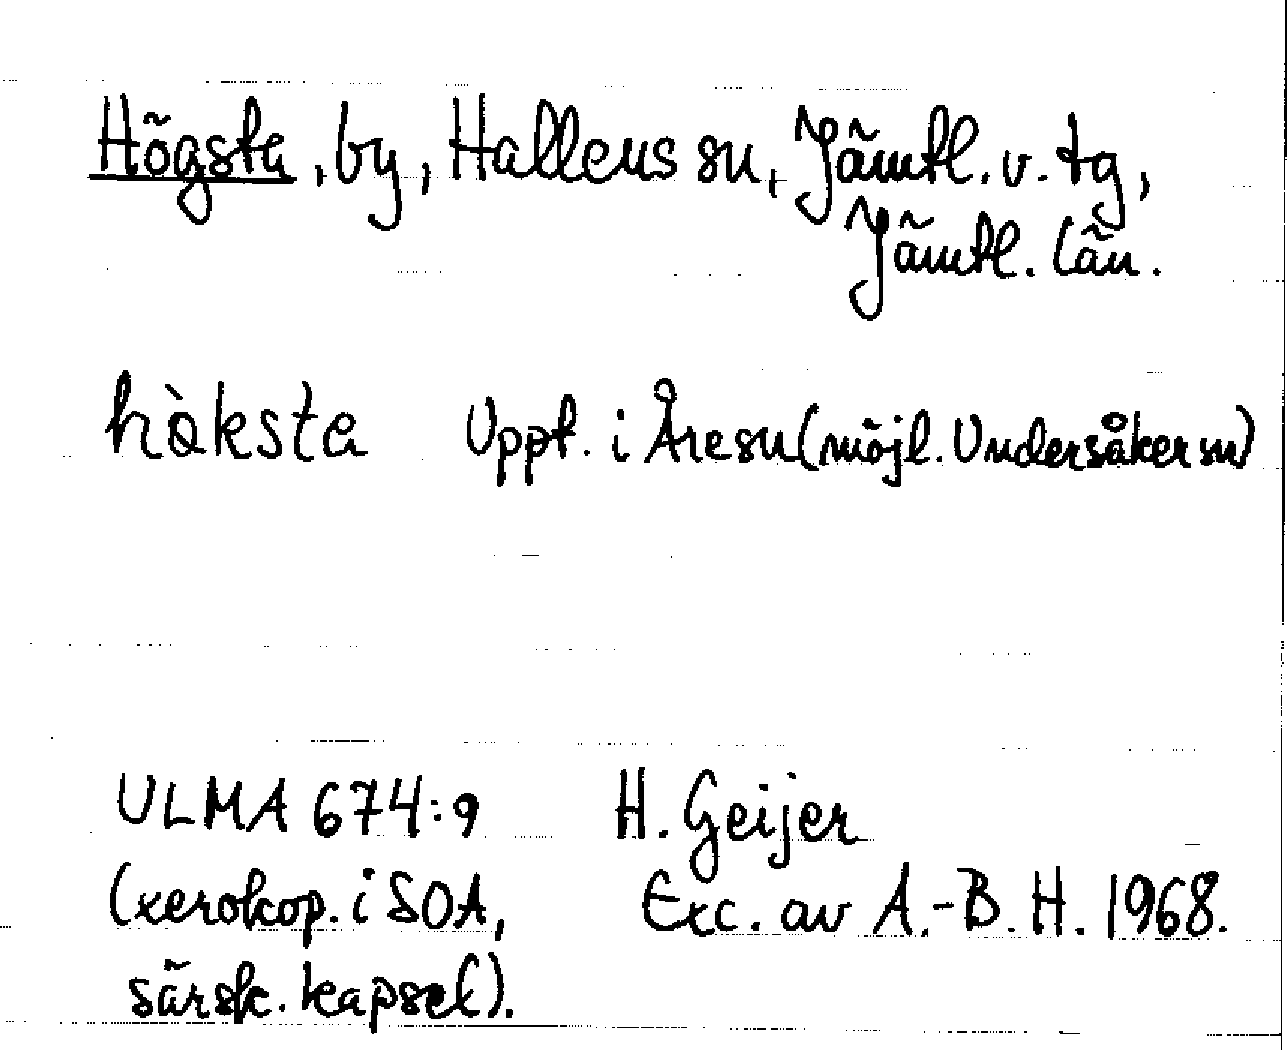 Högsta, by, Hallens sn, Jämtl. v. tg,
Jämtl. län.
hàksta Uppt. i Åresn (möjl. Undersåker sn)
ULMA 674:9 H. Geijer
(xerokop. i SOA, Exc. av A.-B. H. 1968.
särsk. kapsel).